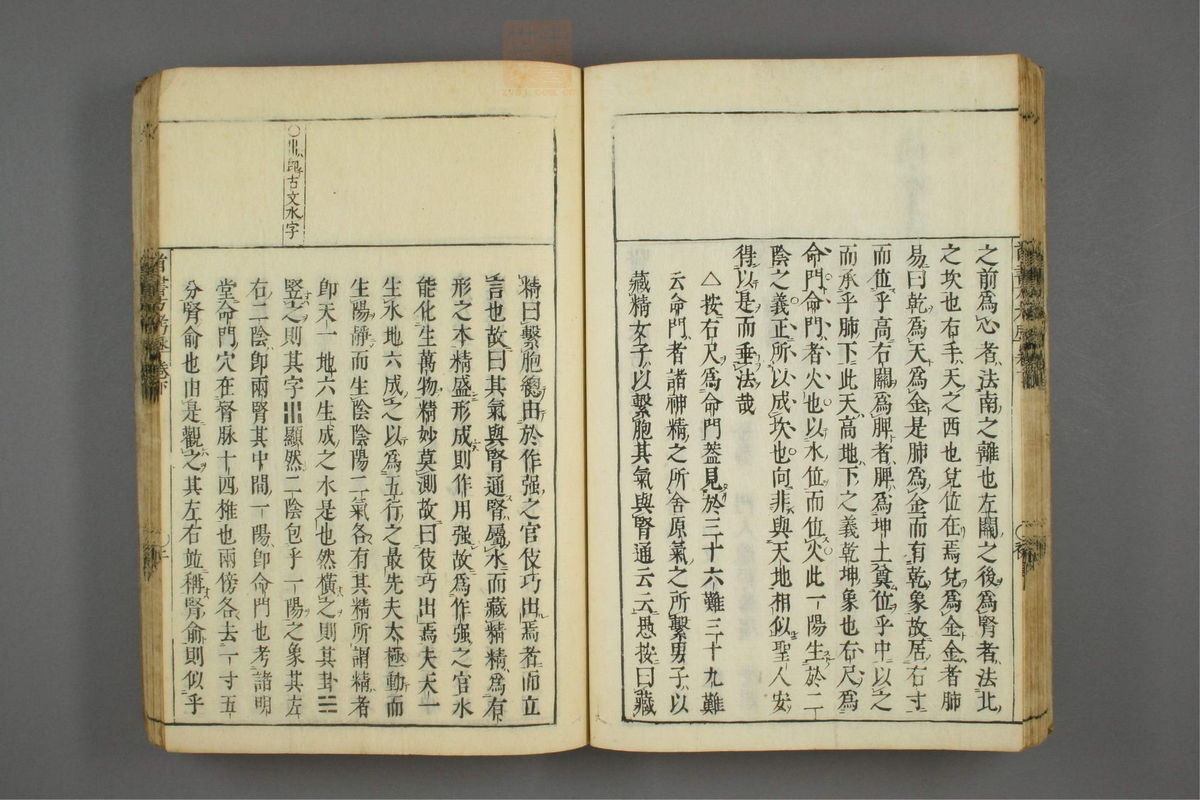 之前爲心者法南之離也左關之後爲腎者法北
之坎也右手天之西也兌位在焉兌爲金金者肺
易曰乾爲天爲金是肺爲金而有乾象故居右寸
而位乎高右關爲脾者脾爲坤土奠位乎中以之
而承乎肺下此天高地下之義乾坤象也右尺爲
命門命門者火也以水位而位火此一陽生於二
陰之義正所以成坎也向非與天地相似聖人安
得以是而垂法哉
△按右尺爲命門蓋見於三十六難三十九難
云命門者諸神精之所舍原氣之所繫男子以
藏精女子以繫胞其氣與腎通云云愚按曰藏
○出卽古文水字
精曰繫胞總由於作强之官伎巧出焉者而立
言也故曰其氣與腎通腎屬水而藏精精爲有
形之本精盛形成則作用强故爲作强之官水
能化生萬物精妙莫測故曰伎巧出焉夫天一
生水地六成之以爲五行之最先夫太極動而
生陽靜而生陰陰陽二氣各有其精所謂精者
卽天一地六生成之水是也然橫之則其卦☵
竪之則其字顯然二陰包乎一陽之象其左
右二陰卽兩腎其中間一陽卽命門也考諸明
堂命門穴在督脉十四椎也兩傍各去一寸五
分腎俞也由是觀之其左右並稱腎俞則似乎